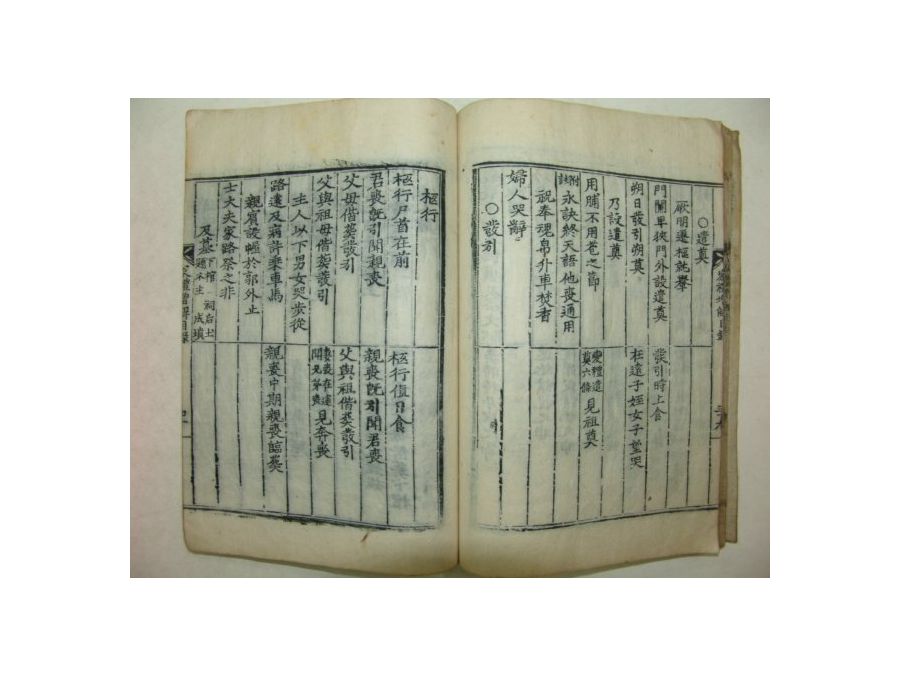 ○遣奠
厥明遷柩就轝
門闕卑狹門外設遣奠
發引時上食
朔日發引朔奠
在遠子姪女子望哭
乃設遣奠
用脯不用苞之節
變禮遣奠六條 見祖奠
附註 永訣終天語他喪通用
祝奉魂帛升車焚香
婦人哭辭
○發引
柩行
柩行尸首在前
柩行値日食
君喪旣引聞親喪
親喪旣引聞君喪
父母偕葬發引
父與祖偕葬發引
父與祖母偕葬發引
見奔喪
主人以下男女哭步從
路遠及病許乘車馬
親喪中期親喪臨葬
親賓設幄於郭外止
士大夫家路祭之非
及墓 下棺 祠后土 題木主 成墳
家禮增解目錄